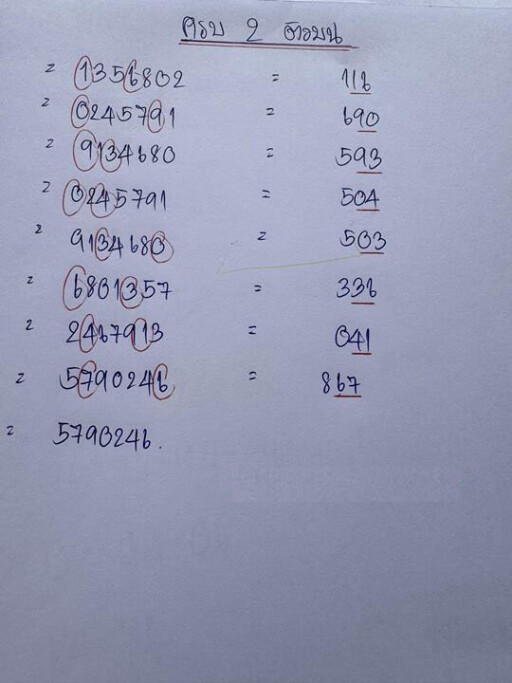 ครบ 2 ตัวบน
= 1356802 = 116
= 0245791 = 690
= 9134680 = 593
= 0245791 = 504
= 9134680 = 503
= 6801357 = 336
= 2467913 = 041
= 5790246 = 867
= 5790246.